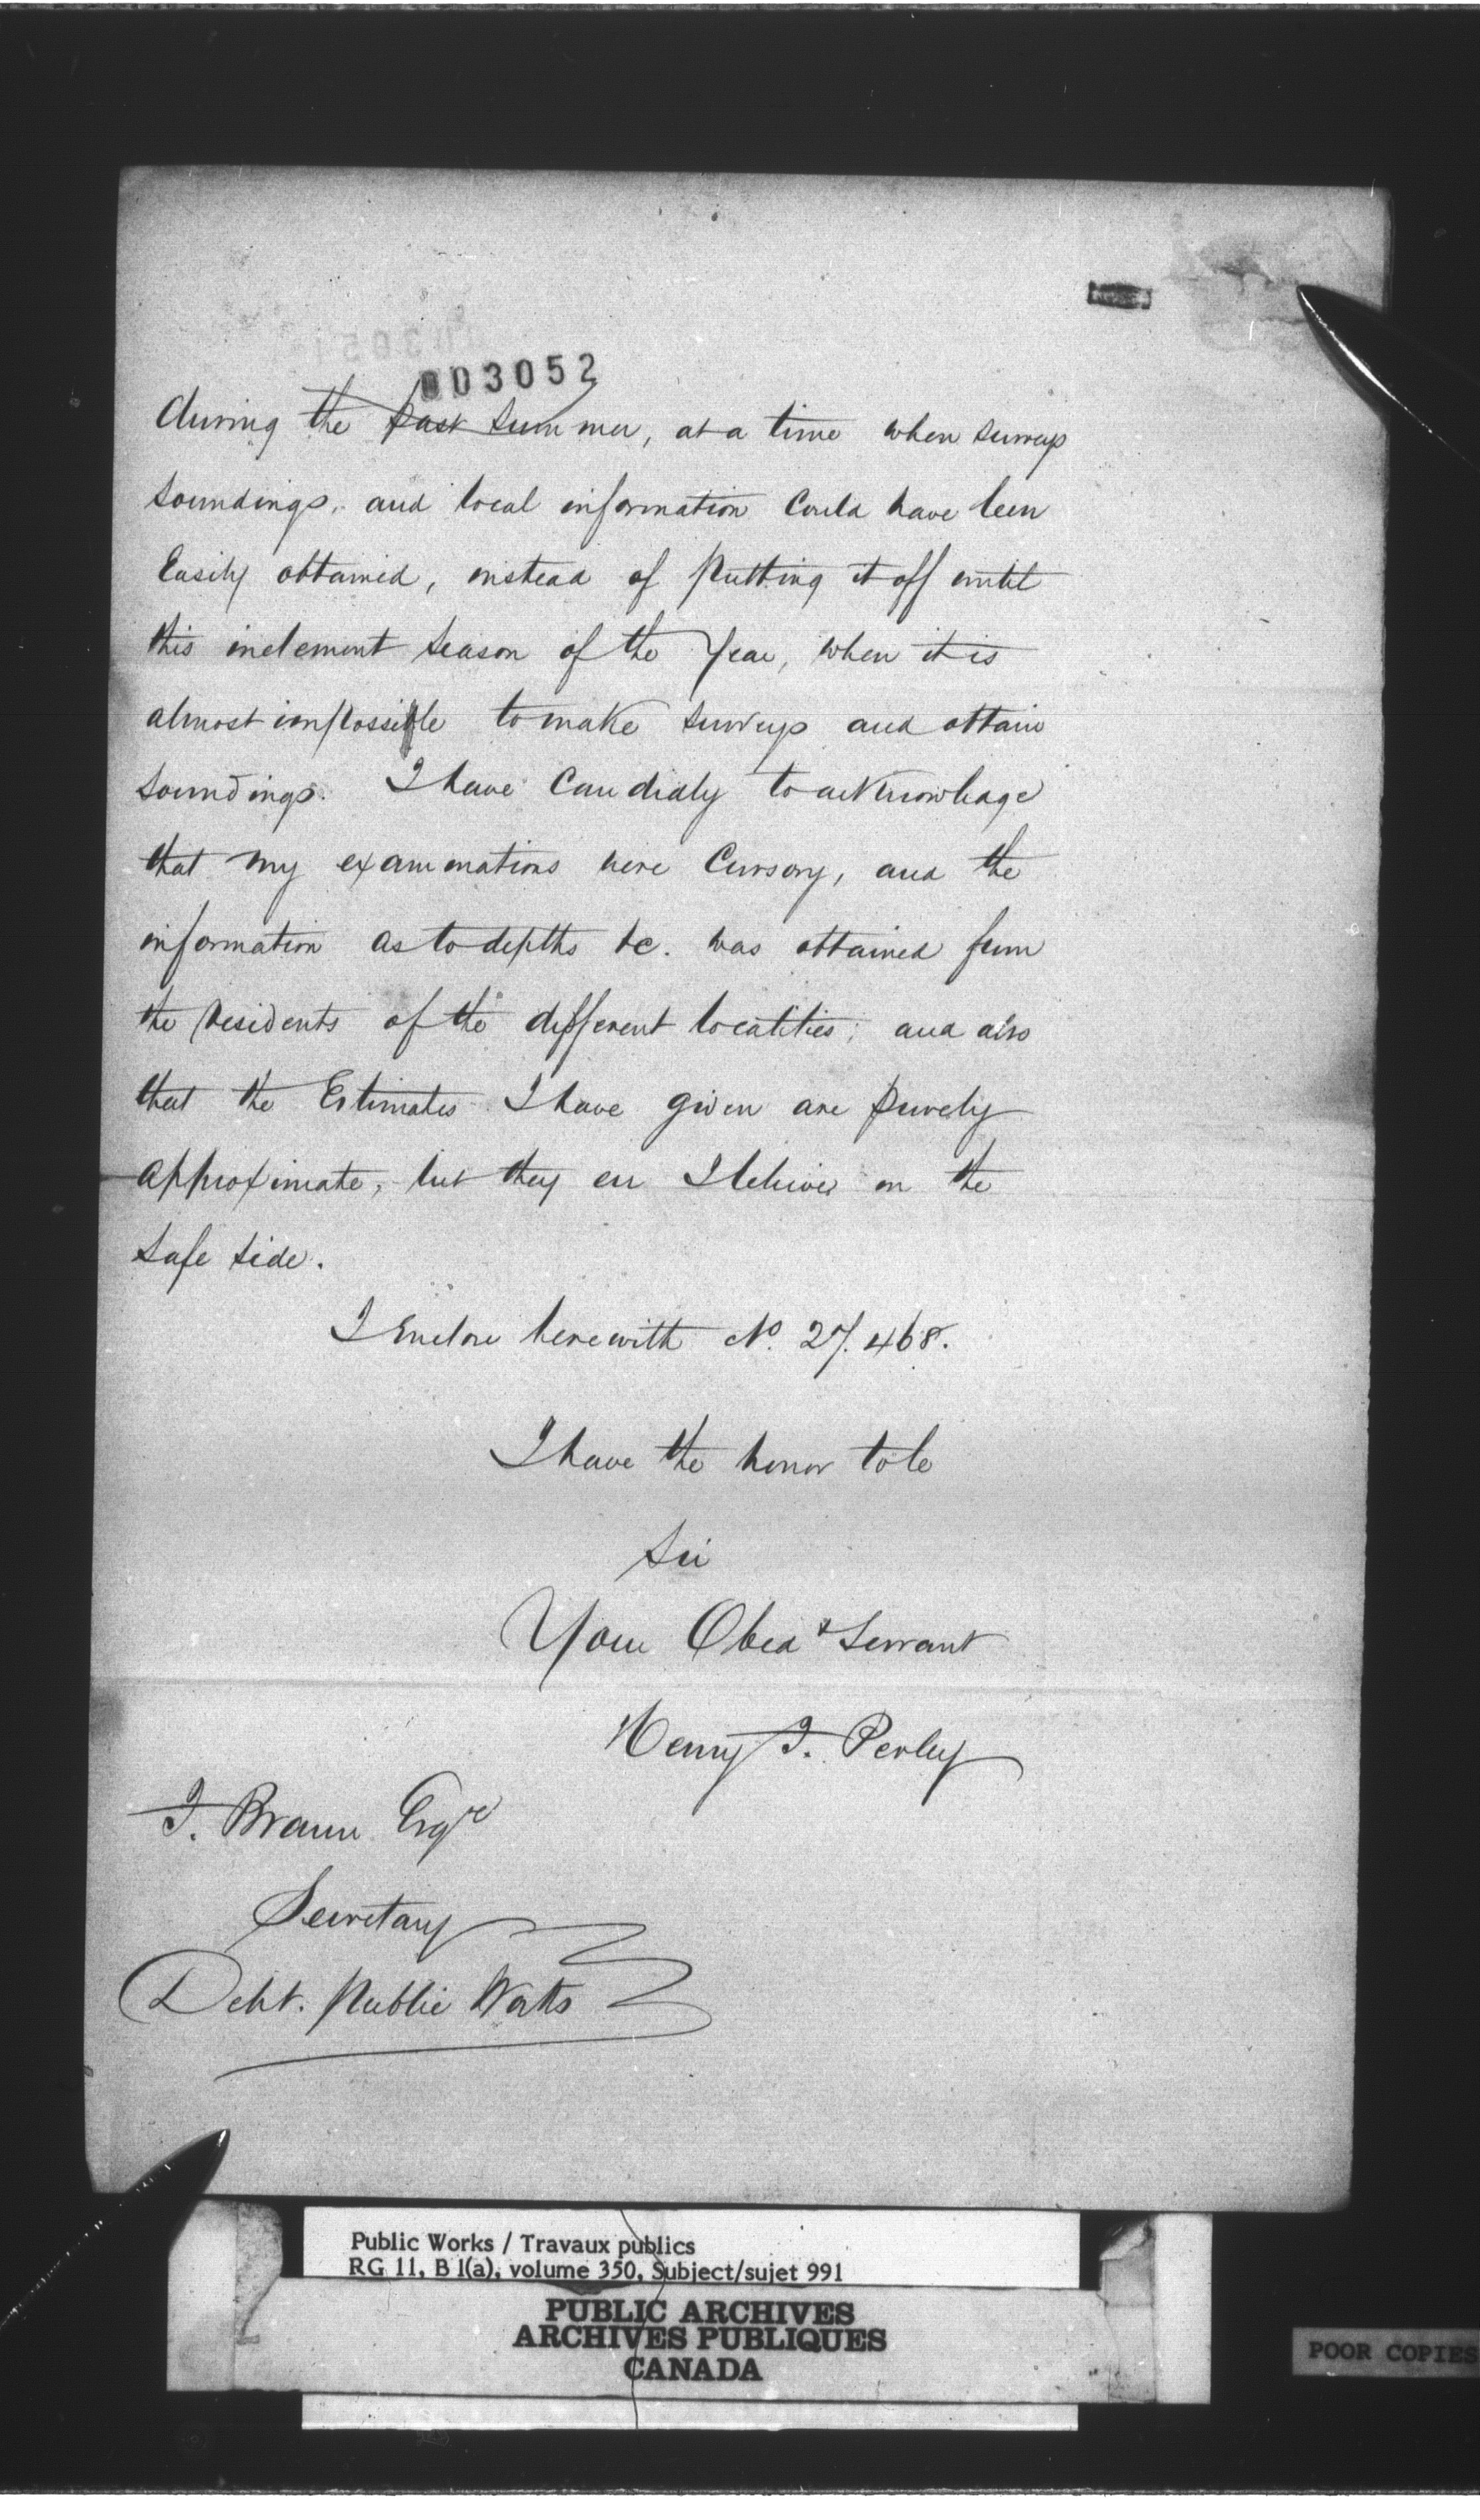 003052
during the past summer, at a time when surveys
soundings, and local information could have been
Easily obtained, instead of putting it off until
this inclement season of the Year, when it is
almost impossible to make surveys and obtain
soundings. I have Candidly to acknowledge
that my examinations were Cursory, and the
information as to depths &c. was obtained from
the residents of the different localities; and also
that the Estimates I have given are purely
approximate, but they err I believe on the
safe side.
I Enclose herewith No. 27.468.
I have the honor to be
Sir
Your Obedt Servant
Henry F. Perley
F. Braun Esqre
Secretary
Dept. Public Works
Public Works / Travaux publics
RG 11, B 1(a), volume 350, Subject/sujet 991
PUBLIC ARCHIVES
ARCHIVES PUBLIQUES
CANADA
POOR COPIES